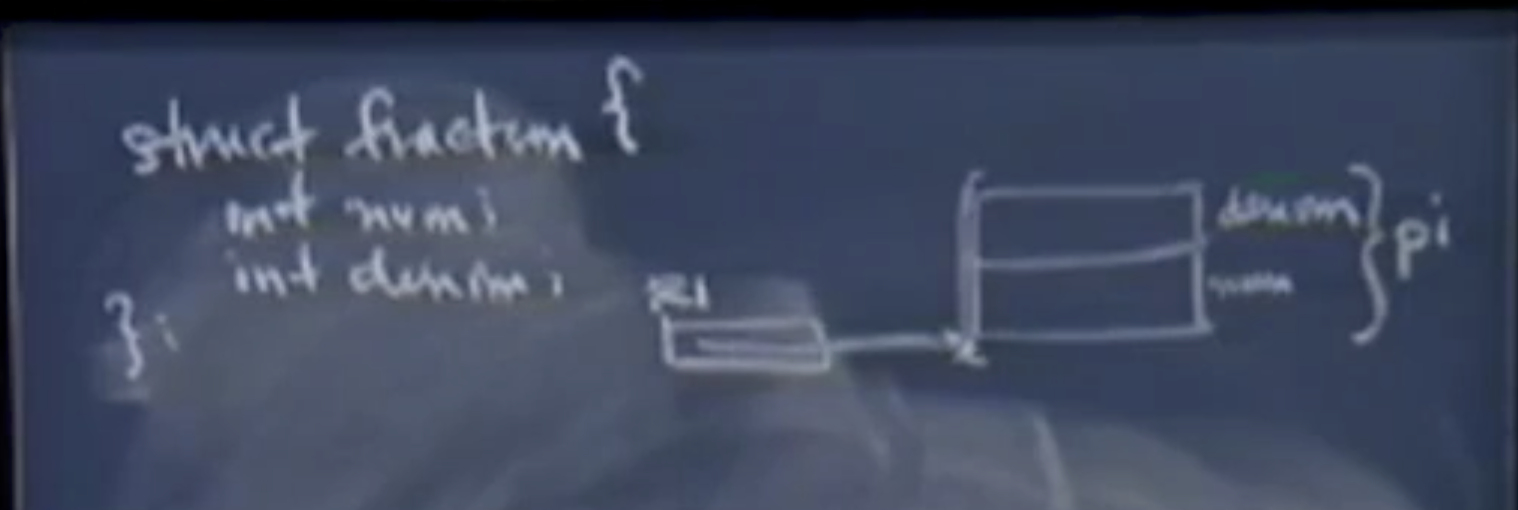 struct fraction {
int num;
int denom;
};
R1
denom
num
} pi